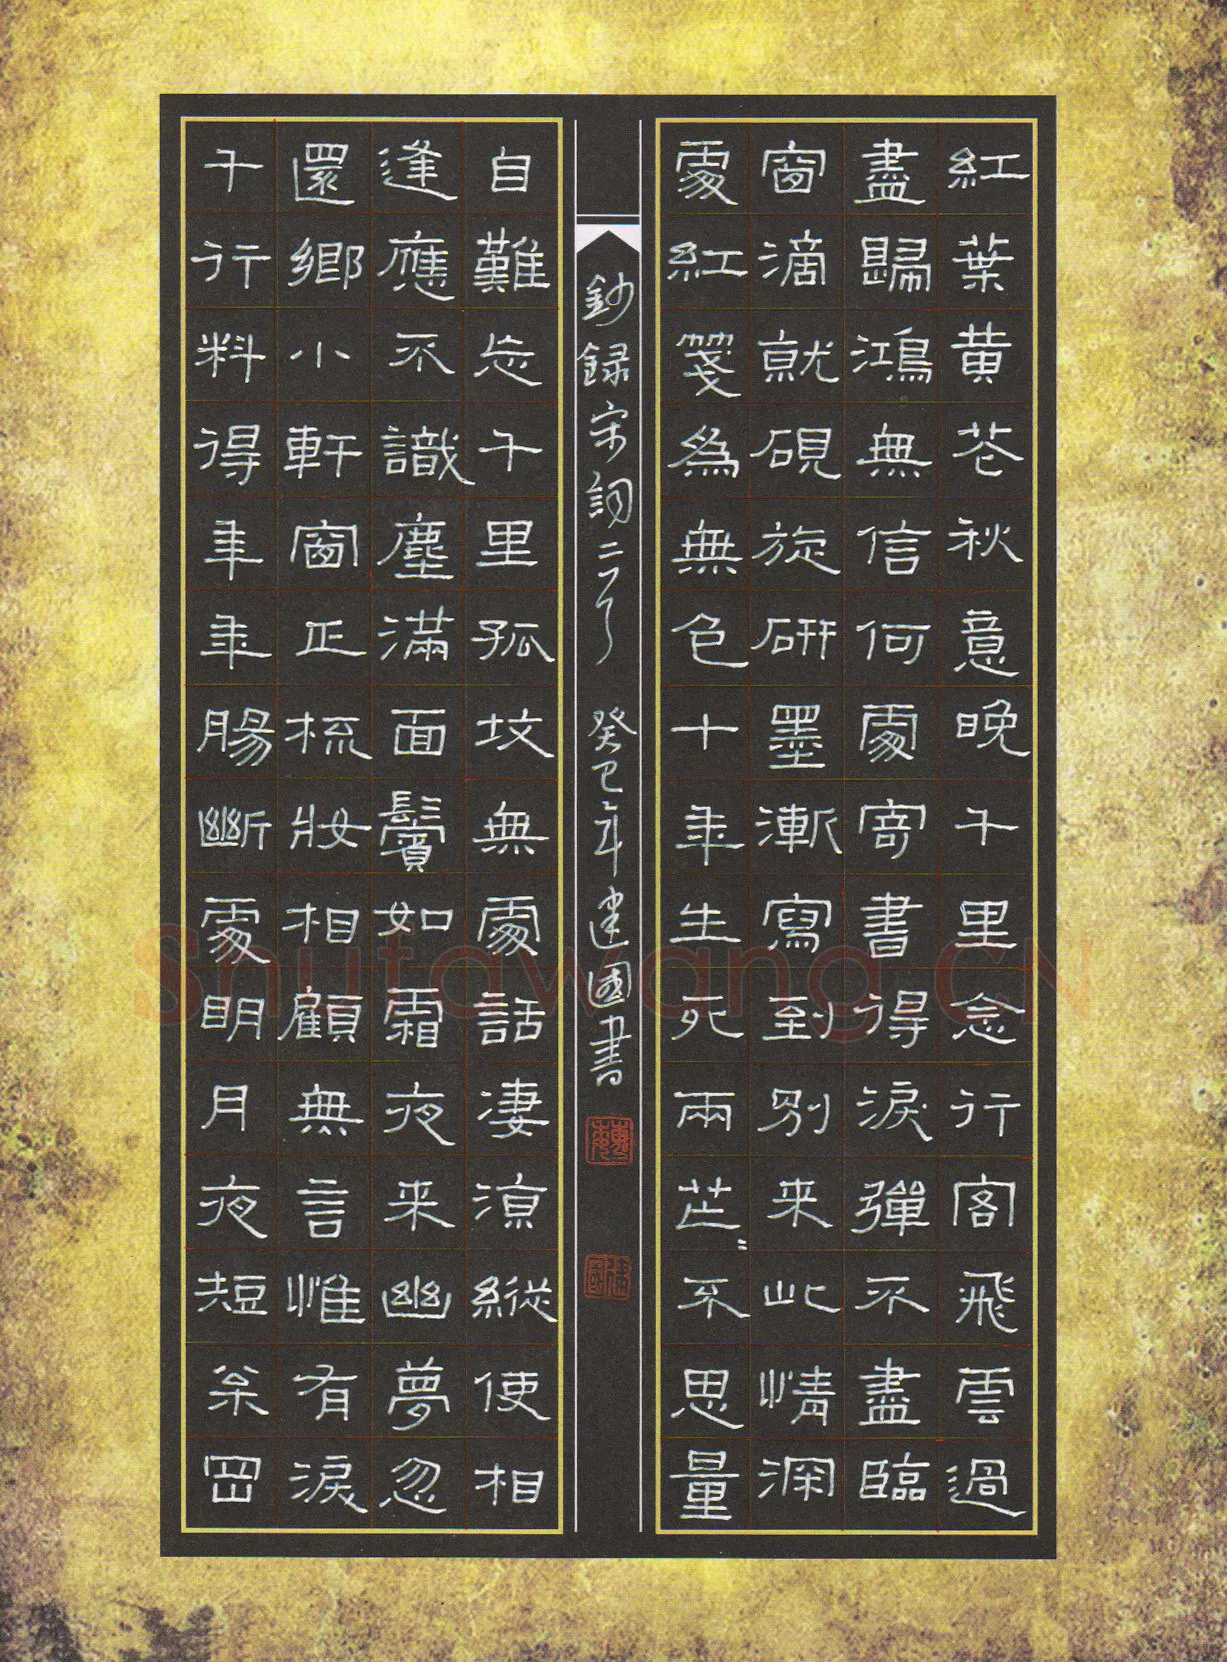 紅葉黄花秋意晚千里念行客飛雲過
盡歸鴻無信何處寄書得淚彈不盡臨
窗滴就硯旋研墨漸寫到別来此情深
處紅箋為無色十年生死兩茫〻不思量
鈔録宋詞二首 癸巳年建國書
自難忘千里孤坟無處話淒涼縱使相
逢應不識塵滿面鬢如霜夜来幽夢忽
還鄉小軒窗正梳妝相顧無言惟有淚
千行料得年年腸斷處明月夜短松岡
Shufawang.CN